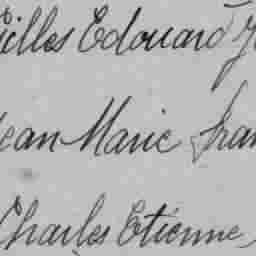 illes Edouard J
Jean Marie Fran
Charles Etienne